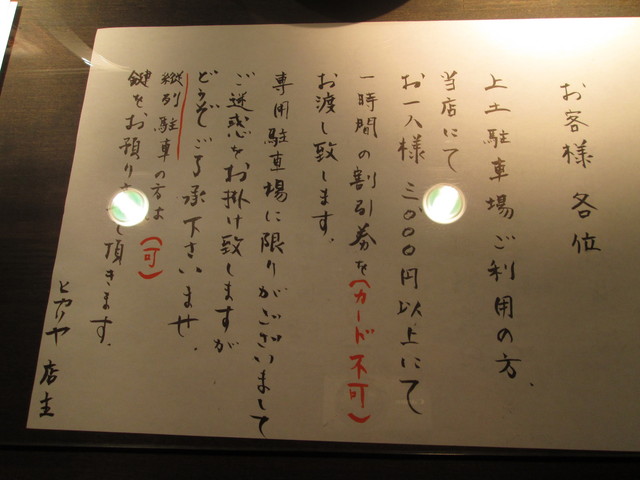 お客様 各位
上土駐車場ご利用の方、
当店にて
お一人様 三〇〇〇円以上にて
一時間の割引券を(カード不可)
お渡し致します。
専用駐車場に限りがございまして
ご迷惑をお掛け致しますが
どうぞご了承下さいませ。
縦列駐車の方は(可)
鍵をお預り し頂きます。
ヒカリヤ 店主